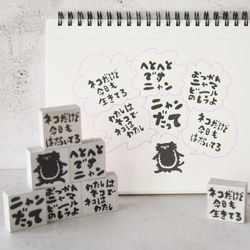 へとへと
です
ニャン
ネコだけど
今日も
はたらいてる
おつかれ
ビール
のもうよ
わたしは
ネコで
ネコは
わたし
ニャン
だって
ネコだけど
今日も
生きてる
ネコだけど
今日も
はたらいてる
へとへと
です
ニャン
ニャン
だって
わたしは
ネコで
ネコは
わたし
おつかれ
ビール
のもうよ
ネコだけど
今日も
生きてる